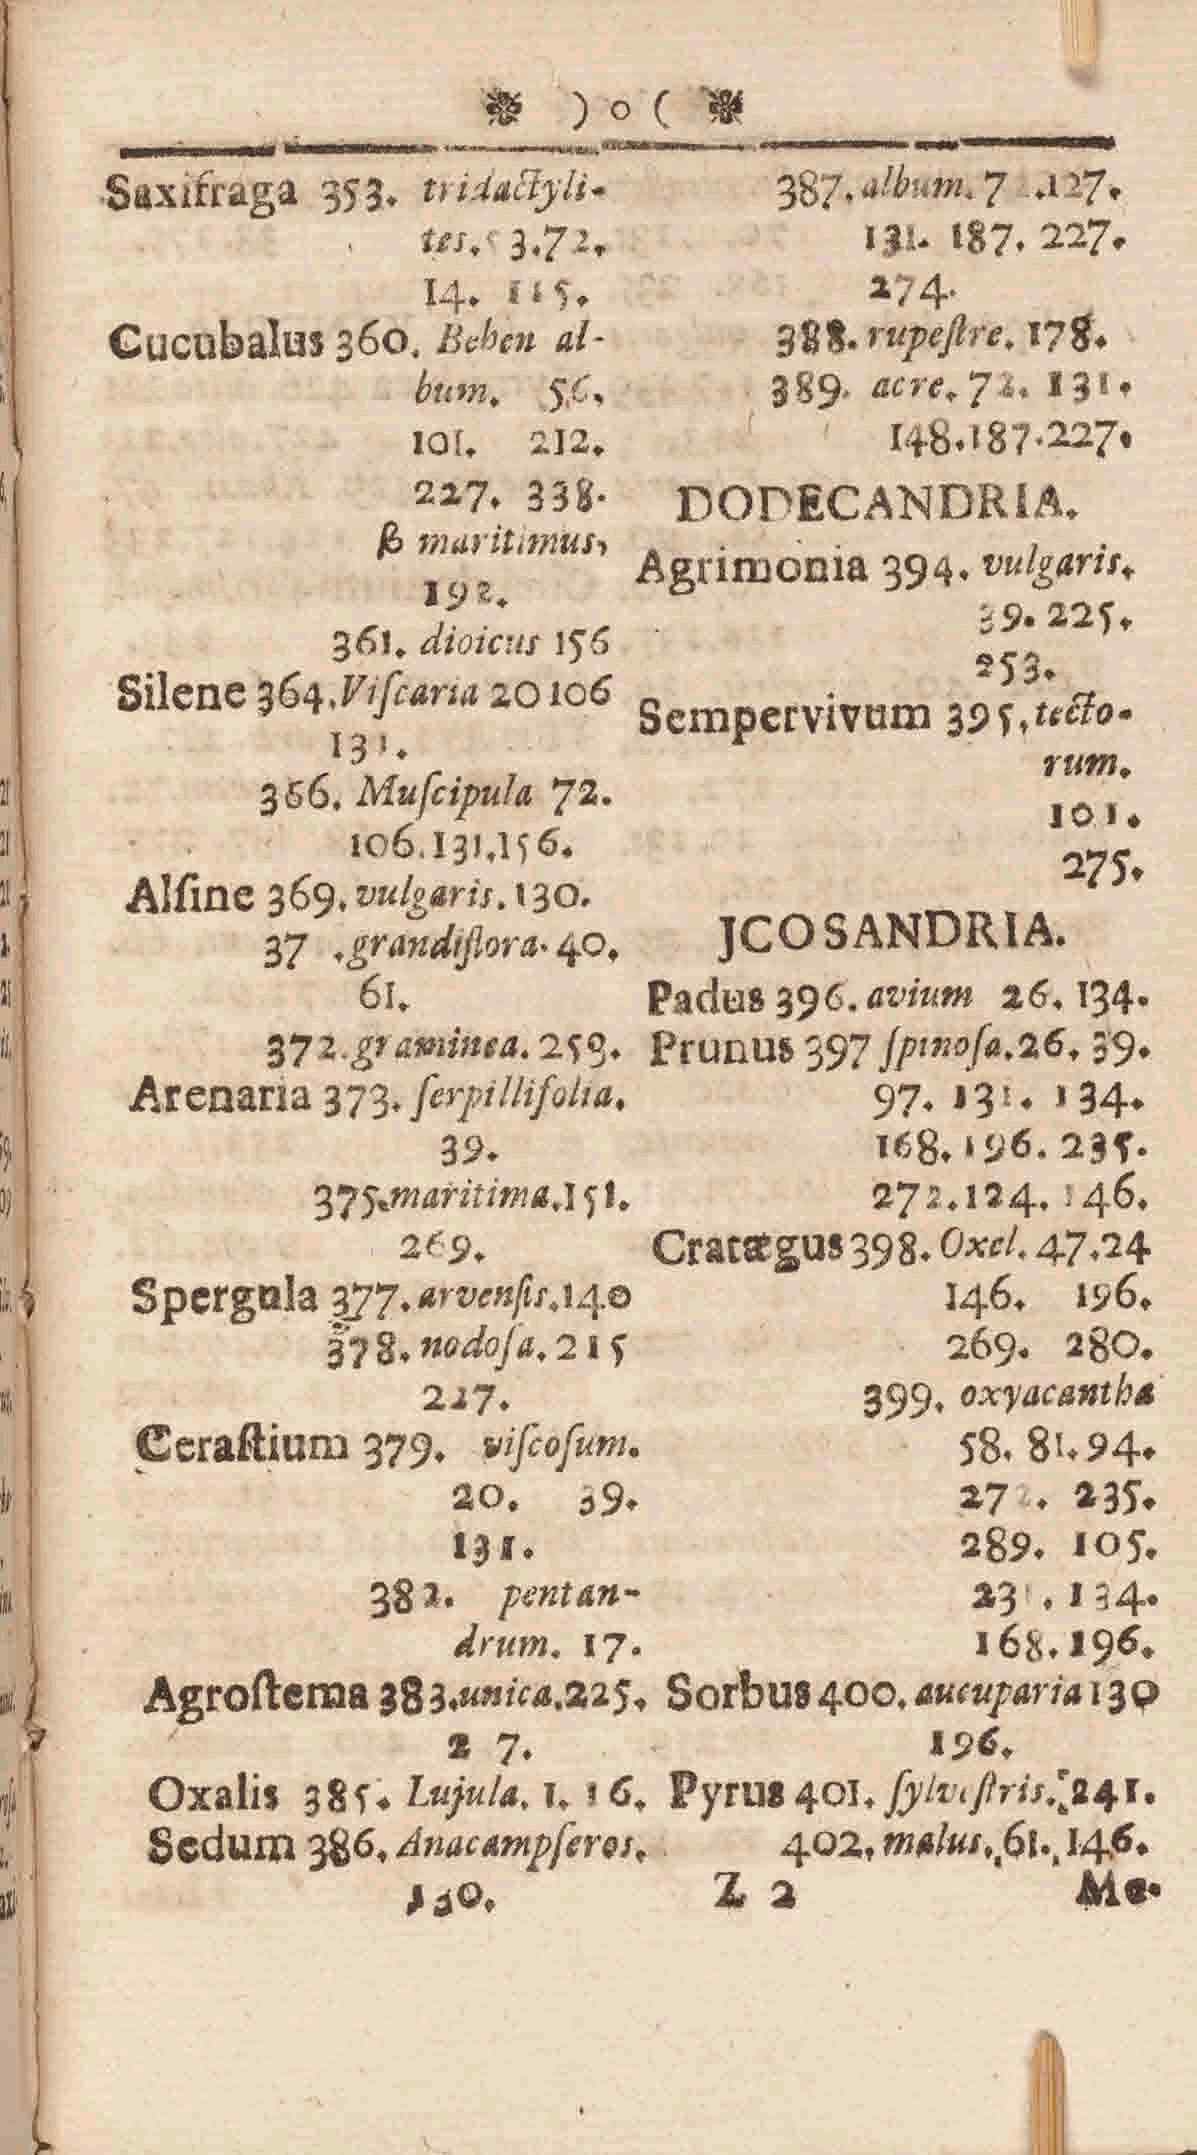 ❀ ) o ( ❀
Saxifraga 353. tridactyli-
tes. 3.72.
14. 115.
Cucubalus 360. Behen al-
bum. 56.
101. 212.
227. 338.
ß maritimus,
192.
361. dioicus 156
Silene 364. Viſcaria 20 106
131.
366. Muſcipula 72.
106.131.156.
Alſine 369. vulgaris. 130.
37 . grandiflora. 40.
61.
372. graminea. 259.
Arenaria 373. ſerpillifolia.
39.
375. maritima. 151.
269.
Spergula 377. arvenſis. 140
378. nodoſa. 215
227.
Ceraſtium 379. viſcoſum.
20. 39.
131.
382. pentan-
drum. 17.
Agroſtema 383. unica. 225.
2 7.
Oxalis 385. Lujula. 1. 16.
Sedum 386. Anacampſeros.
130.
387. album. 7 .127.
131. 187. 227.
274.
388. rupeſtre. 178.
389. acre. 72. 131.
148.187.227.
DODECANDRIA.
Agrimonia 394. vulgaris.
39. 225.
253.
Sempervivum 395, tecto-
rum.
101.
275.
JCOSANDRIA.
Padus 396. avium 26. 134.
Prunus 397 ſpinoſa. 26. 39.
97. 131. 134.
168. 196. 235.
272.124. 146.
Cratægus 398. Oxel. 47.24
146. 196.
269. 280.
399. oxyacantha
58. 81. 94.
272. 235.
289. 105.
231. 134.
168. 196.
Sorbus 400. aucuparia 130
196.
Pyrus 401. ſylveſtris. 241.
402. malus. 61. 146.
Z 2 Me-